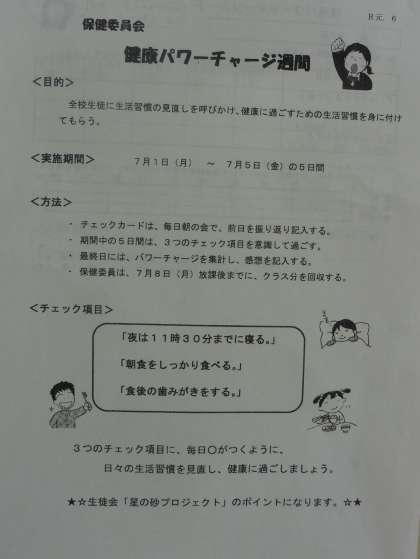 R元.6
保健委員会
健康パワーチャージ週間
＜目的＞
全校生徒に生活習慣の見直しを呼びかけ、健康に過ごすための生活習慣を身に付け
てもらう。
＜実施期間＞ 7月1日（月） ～ 7月5日（金）の5日間
＜方法＞
・ チェックカードは、毎日朝の会で、前日を振り返り記入する。
・ 期間中の5日間は、3つのチェック項目を意識して過ごす。
・ 最終日には、パワーチャージを集計し、感想を記入する。
・ 保健委員は、7月8日（月）放課後までに、クラス分を回収する。
＜チェック項目＞
「夜は11時30分までに寝る。」
「朝食をしっかり食べる。」
「食後の歯みがきをする。」
3つのチェック項目に、毎日〇がつくように、
日々の生活習慣を見直し、健康に過ごしましょう。
★☆生徒会「星の砂プロジェクト」のポイントになります。☆★